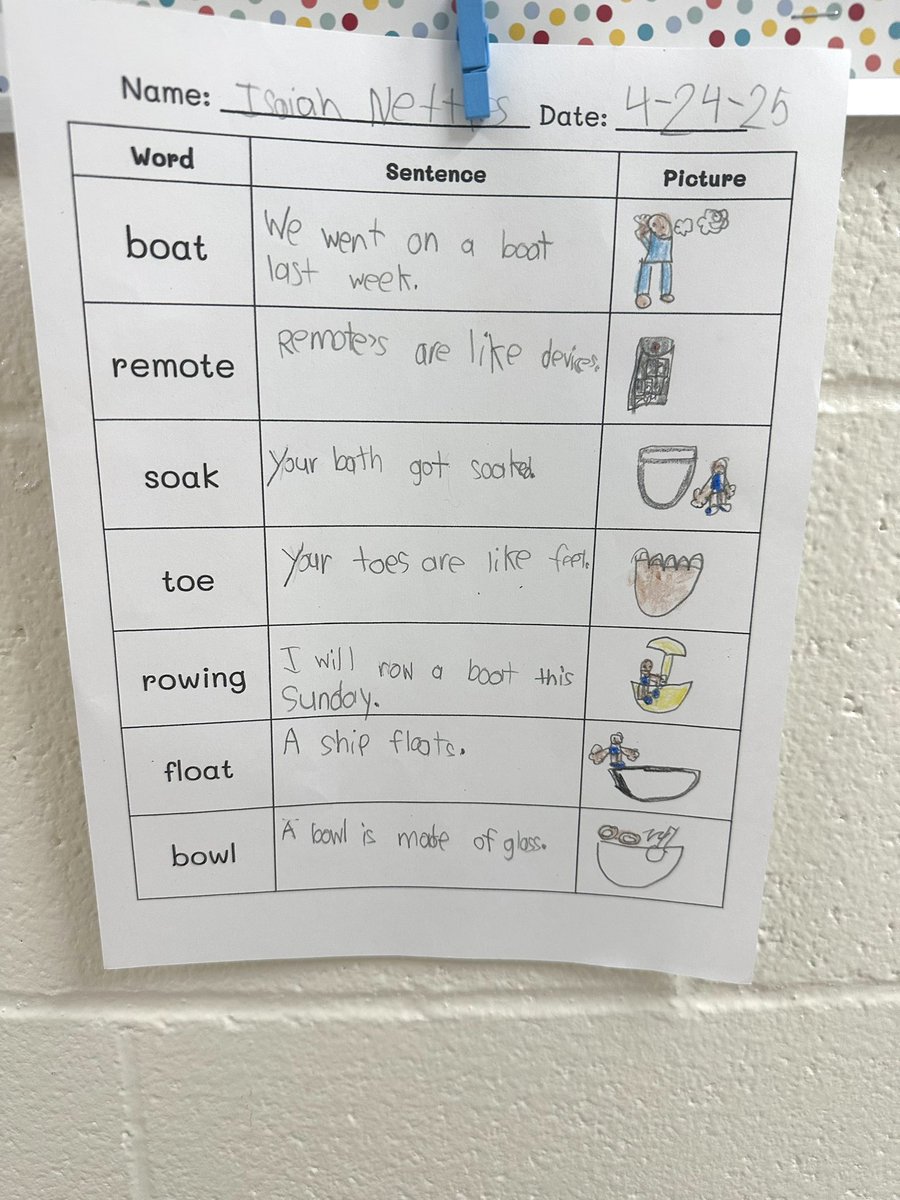 Name: Isaiah Nettles Date: 4-24-25
Word Sentence Picture
boat
We went on a boat
last week.
remote
Remote's are like devices.
soak
Your bath got soaked
toe
Your toes are like feet.
rowing
I will row a boat this
Sunday.
float
A ship floats.
bowl
A bowl is made of glass.